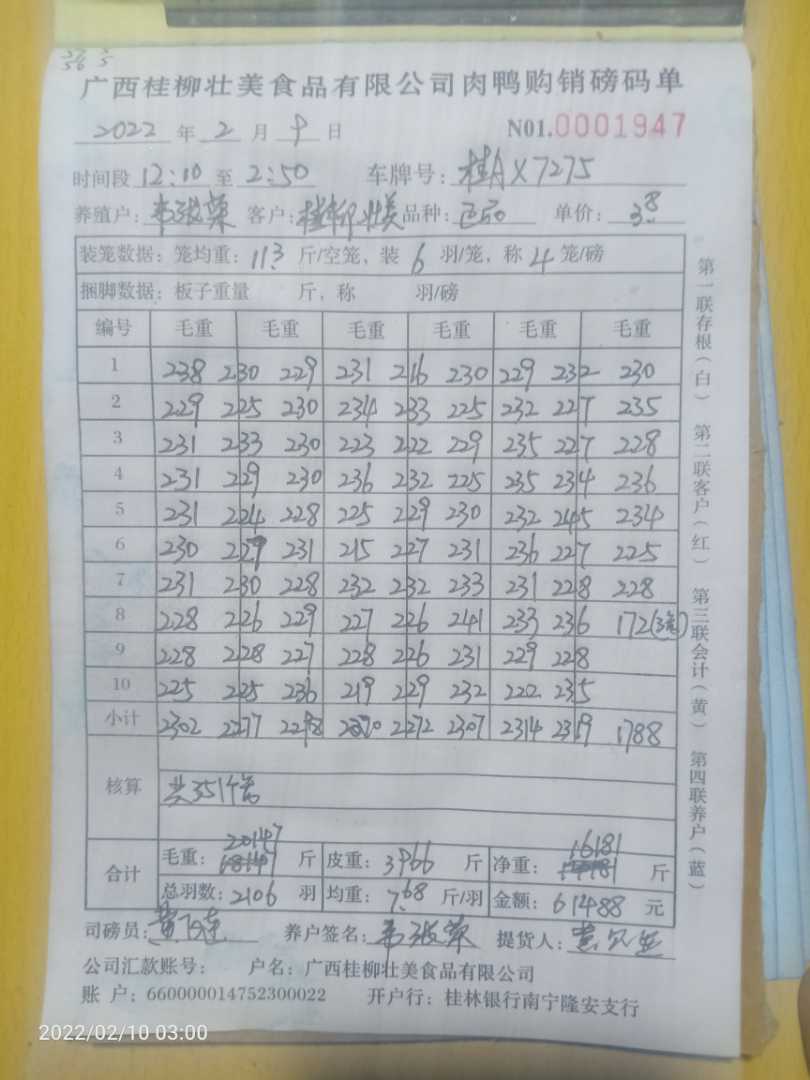 广西桂柳壮美食品有限公司肉鸭购销磅码单
2022 年 2 月 9 日 N01.0001947
时间段 12:10 至 2:50 车牌号: 桂A X7275
养殖户: 客户: 桂柳壮美 品种: 单价: 3.8
装笼数据: 笼均重: 11.3 斤/空笼, 装 6 羽/笼, 称 4 笼/磅
捆脚数据: 板子重量 斤, 称 羽/磅
编号 毛重 毛重 毛重 毛重 毛重 毛重
1 238 230 229 231 216 230 229 232 230
2 229 225 230 234 233 225 232 227 235
3 231 233 230 223 222 229 235 227 228
4 231 229 230 236 232 225 235 234 236
5 231 224 228 225 229 230 232 245 234
6 230 227 231 215 227 231 236 227 225
7 231 230 228 232 232 233 231 228 228
8 228 226 229 227 226 241 233 236 172(3笼)
9 228 228 227 228 226 231 229 228
10 225 225 236 219 229 232 222 235
小计 2302 2277 2298 2270 2272 2307 2314 2319 1788
核算 共351个笼
合计 毛重: 20147 斤 皮重: 3966 斤 净重: 16181 斤
总羽数: 2106 羽 均重: 7.68 斤/羽 金额: 61488 元
司磅员: 养户签名: 提货人:
公司汇款账号: 户名: 广西桂柳壮美食品有限公司
账 户: 660000014752300022 开户行: 桂林银行南宁隆安支行
第一联存根(白) 第二联客户(红) 第三联会计(黄) 第四联养户(蓝)
2022/02/10 03:00